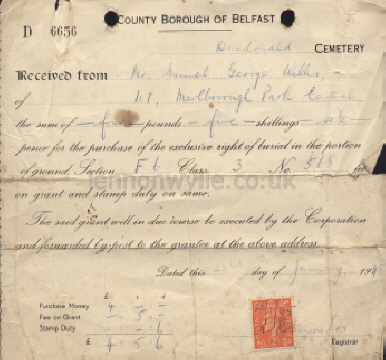 COUNTY BOROUGH OF BELFAST
D 6656
Dundonald CEMETERY
Received from Mr. Samuel George
of 101, Marlborough Park Central
the sum of four pounds five shillings six
pence for the purchase of the exclusive right of burial in the portion
of ground, Section F6 Class 3 No. 518
on grant and stamp duty on same.
The said grant will in due course be executed by the Corporation
and forwarded by post to the grantee at the above address.
Dated this day of January 194
£ s. d.
Purchase Money 4 - -
Fee on Grant - 5 -
Stamp Duty - - 6
£ 4 5 - 6
Registrar